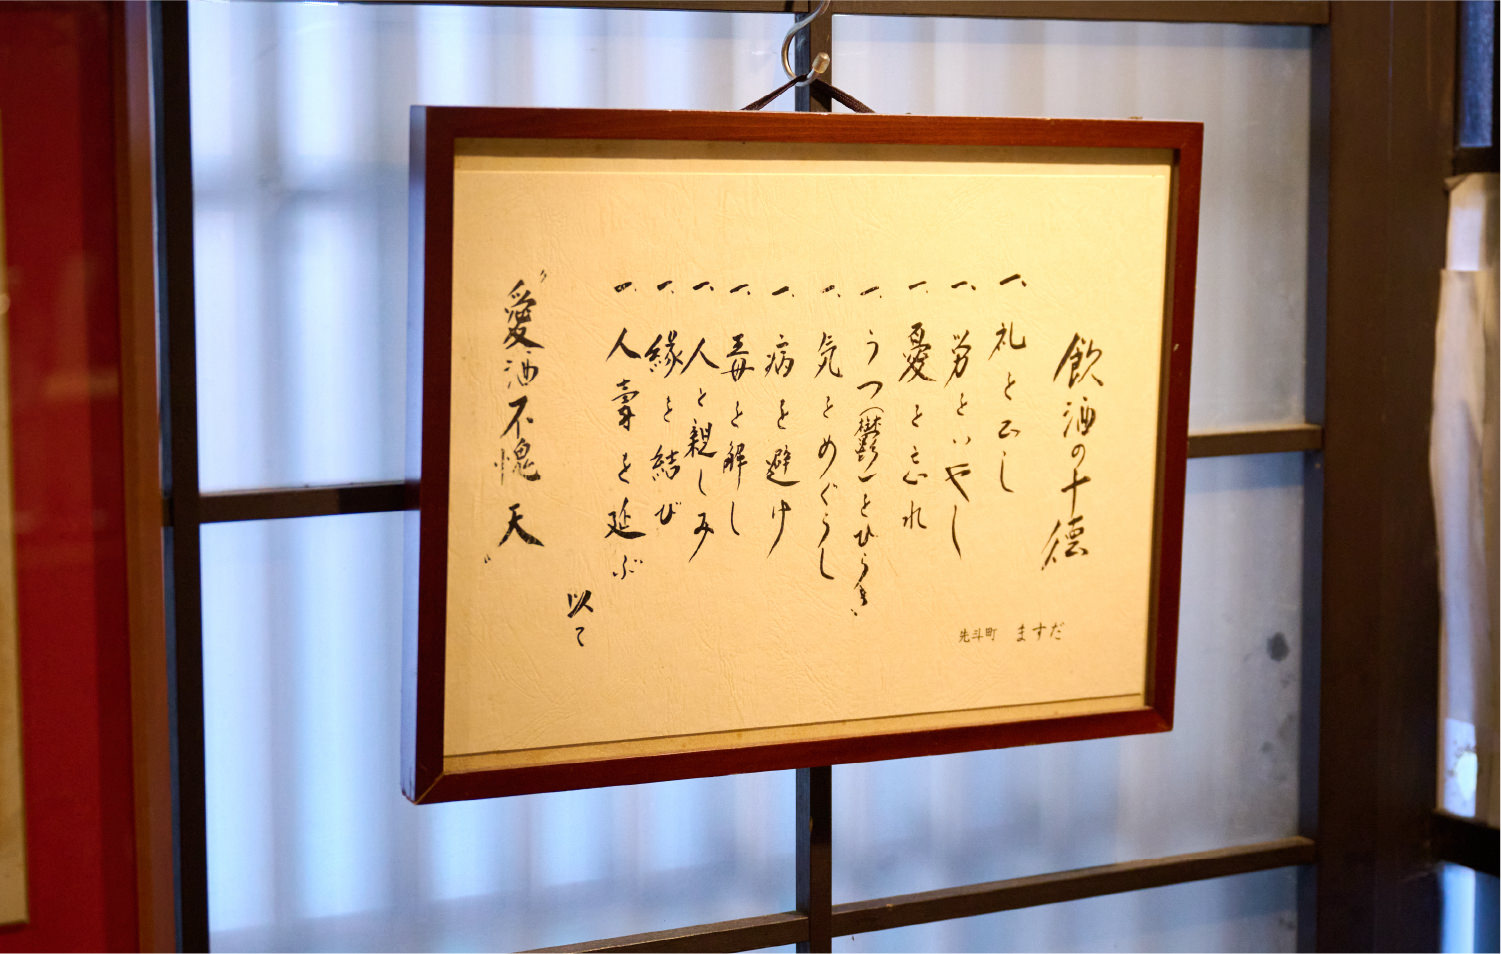 飲酒の十徳
先斗町 ますだ
一、礼を正し
一、労をいやし
一、憂を忘れ
一、うつ(鬱)をひらき
一、気をめぐらし
一、病を避け
一、毒を解し
一、人と親しみ
一、縁を結び
一、人寿を延ぶ
以て
"愛酒不愧天"